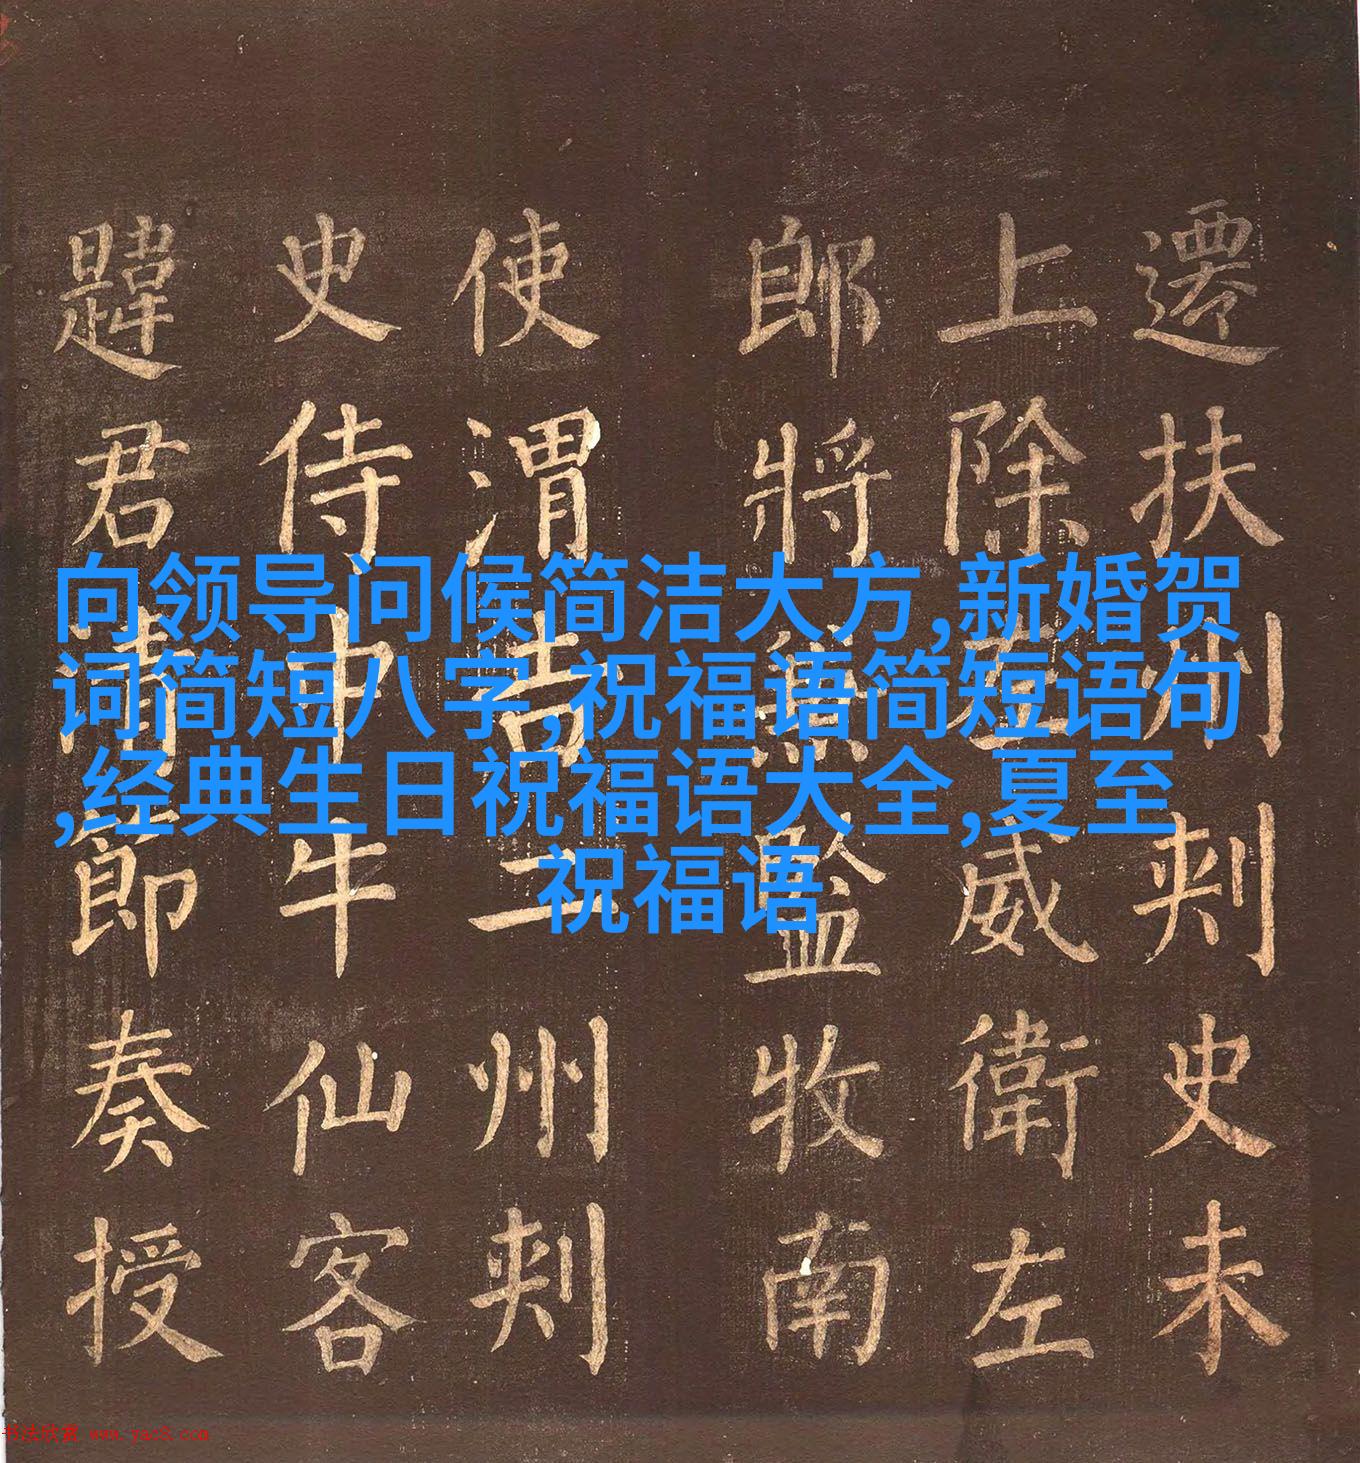 向领导问候简洁大方,新婚贺
词简短八字,祝福语简短语句
,经典生日祝福语大全,夏至
祝福语
遷扶州刺史未
上除左威衛左
郎將兼監牧南
使渭吉二州刺
史侍中牛仙客
韙君清節奏授
书法欣赏 www.yac8.com